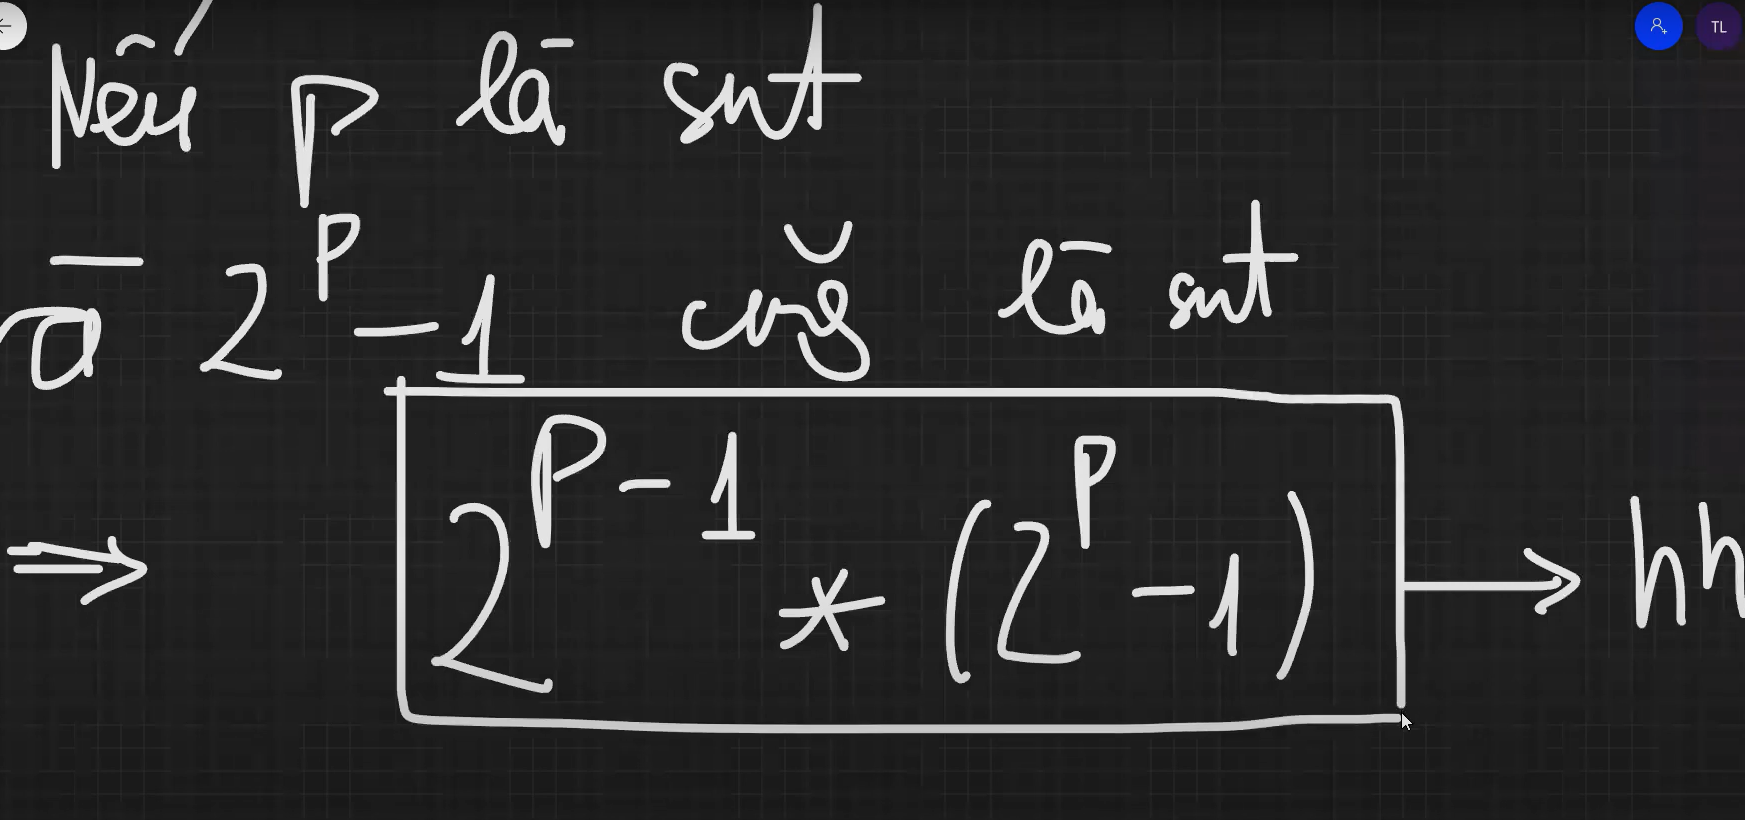 TL
Nếu P là snt
và 2^P - 1 cũg là snt
⇒ 2^(P-1) * (2^P - 1) → hh